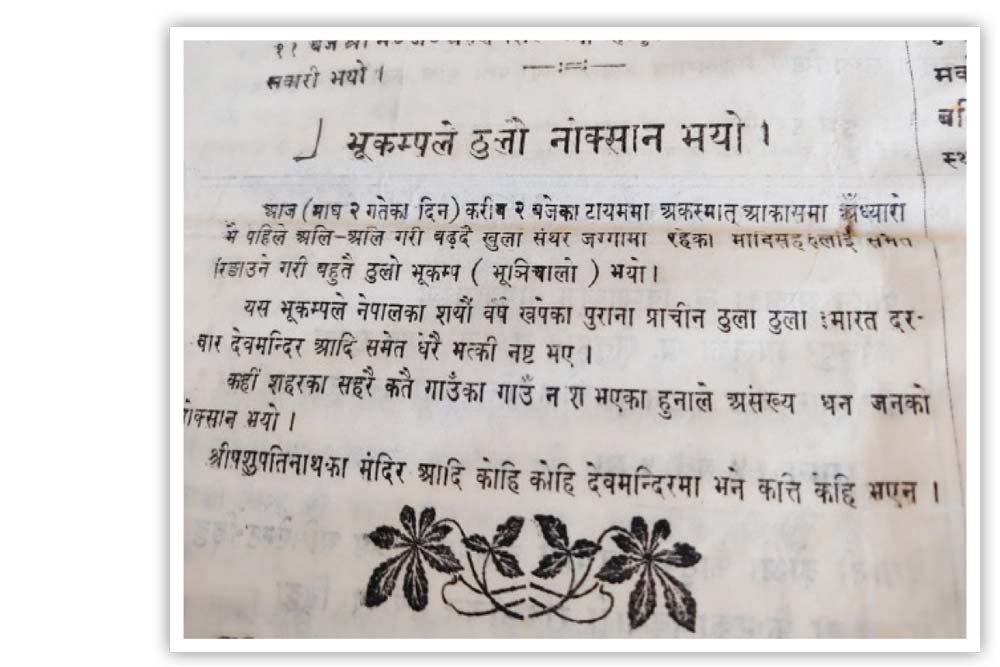 सवारी भयो ।
भूकम्पले ठुलो नोक्सान भयो ।
आज (माघ २ गतेका दिन) करीब २ बजेका टायममा अकस्मात् आकासमा अँध्यारो
भै पहिले अलि-अलि गरी बढ्दै खुला संथर जग्गामा रहेका मानिसहरुलाई समेत
रिङाउने गरी बहुतै ठुलो भूकम्प ( भूञिचालो ) भयो ।
यस भूकम्पले नेपालका शयौं वर्ष खपेका पुराना प्राचीन ठुला ठुला इमारत दर-
बार देवमन्दिर आदि समेत धेरै भत्की नष्ट भए ।
कहीं शहरका सहरै कतै गाउँका गाउँ न श भएका हुनाले असंख्य धन जनको
नोक्सान भयो ।
श्रीपशुपतिनाथका मंदिर आदि कोहि कोहि देवमन्दिरमा भने कत्ति केहि भएन ।